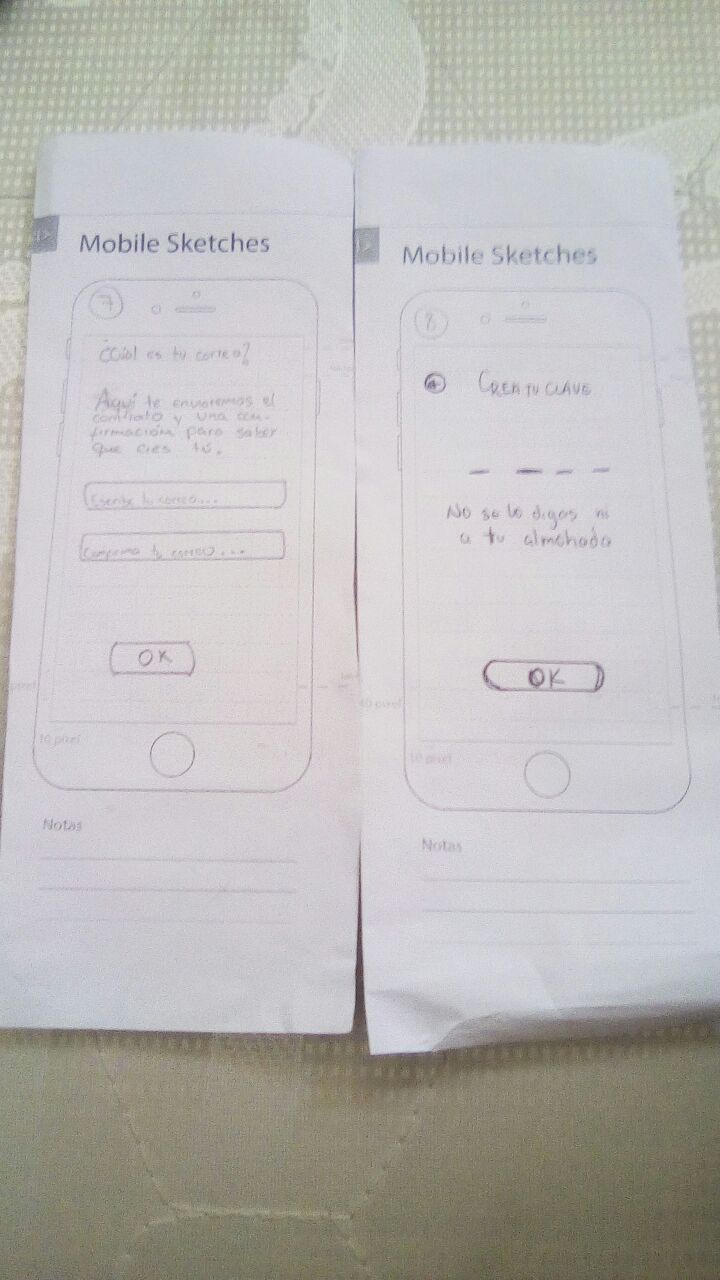 Mobile Sketches
7
¿Cúal es tu correo?
Aquí te enviaremos el
contrato y una con-
firmación para saber
que eres tú.
Escribe tu correo...
Comfirma tu correo...
OK
10 pixel
Notas
Mobile Sketches
8
CREA TU CLAVE
No se lo digas ni
a tu almohada
OK
40 pixel
10 pixel
Notas